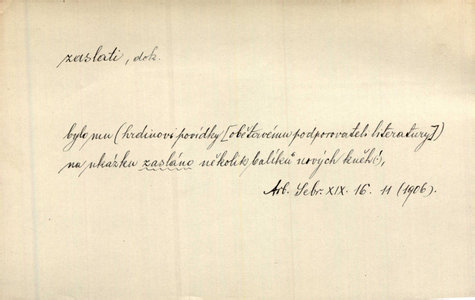 zaslati, dok.
bylo mu (hrdinovi povídky [obětavému podporovateli literatury])
na ukázku zasláno několik balíků nových kněh),
Arb. Sebr. XIX. 16. 11 (1906).